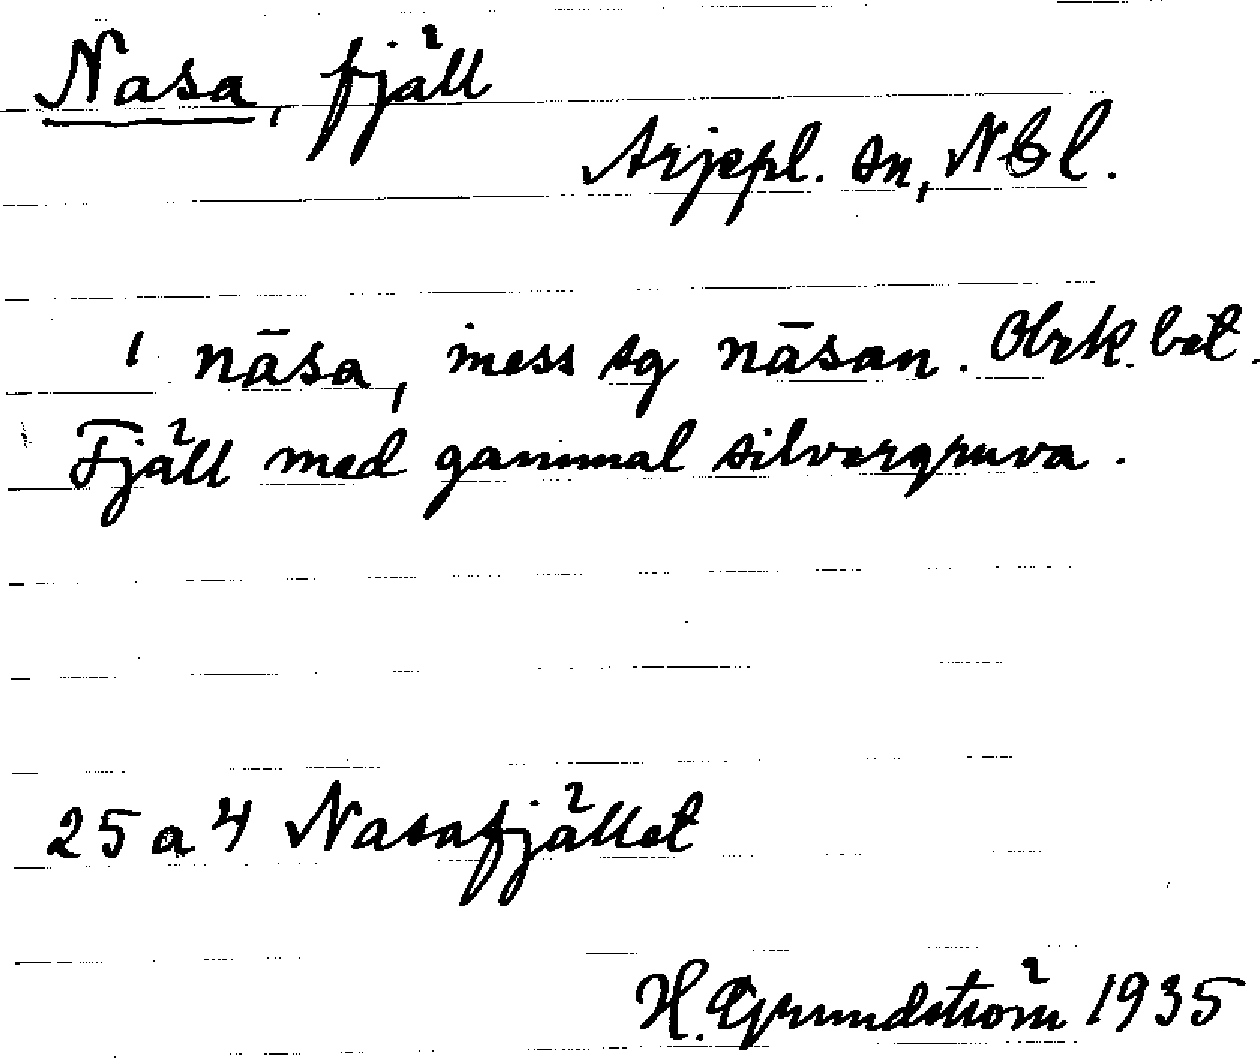 Nasa, fjäll
Arjepl. sn, Nbl.
ˈnāsa, iness sg nāsan. Obek. bet.
Fjäll med gammal silvergruva.
25 a 4 Nasafjället
H. Grundström 1935